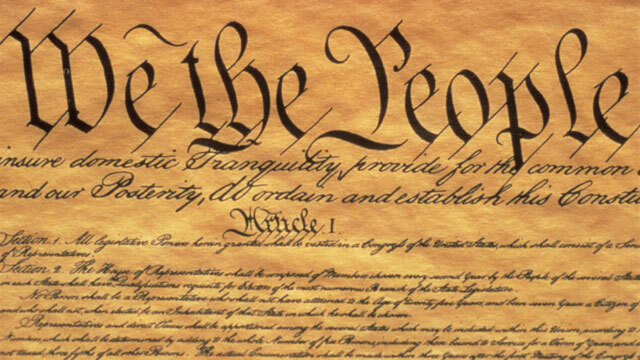 We the People
insure domestic Tranquility, provide for the common
and our Posterity, do ordain and establish this Constit
Article. I.
Section. 1. All legislative Powers herein granted shall be vested in a Congress of the United States, which shall consist of a Sen
of Representatives.
Section. 2. The House of Representatives shall be composed of Members chosen every second Year by the People of the several States
in each State shall have Qualifications requisite for Electors of the most numerous Branch of the State Legislature.
No Person shall be a Representative who shall not have attained to the Age of twenty five Years, and been seven Years a Citizen of
and who shall not, when elected, be an Inhabitant of that State in which he shall be chosen.
Representatives and direct Taxes shall be apportioned among the several States which may be included within this Union, according to
Numbers, which shall be determined by adding to the whole Number of free Persons, including those bound to Service for a Term of Years, and
not taxed, three fifths of all other Persons. The actual Enumeration shall be made within three Years after the first